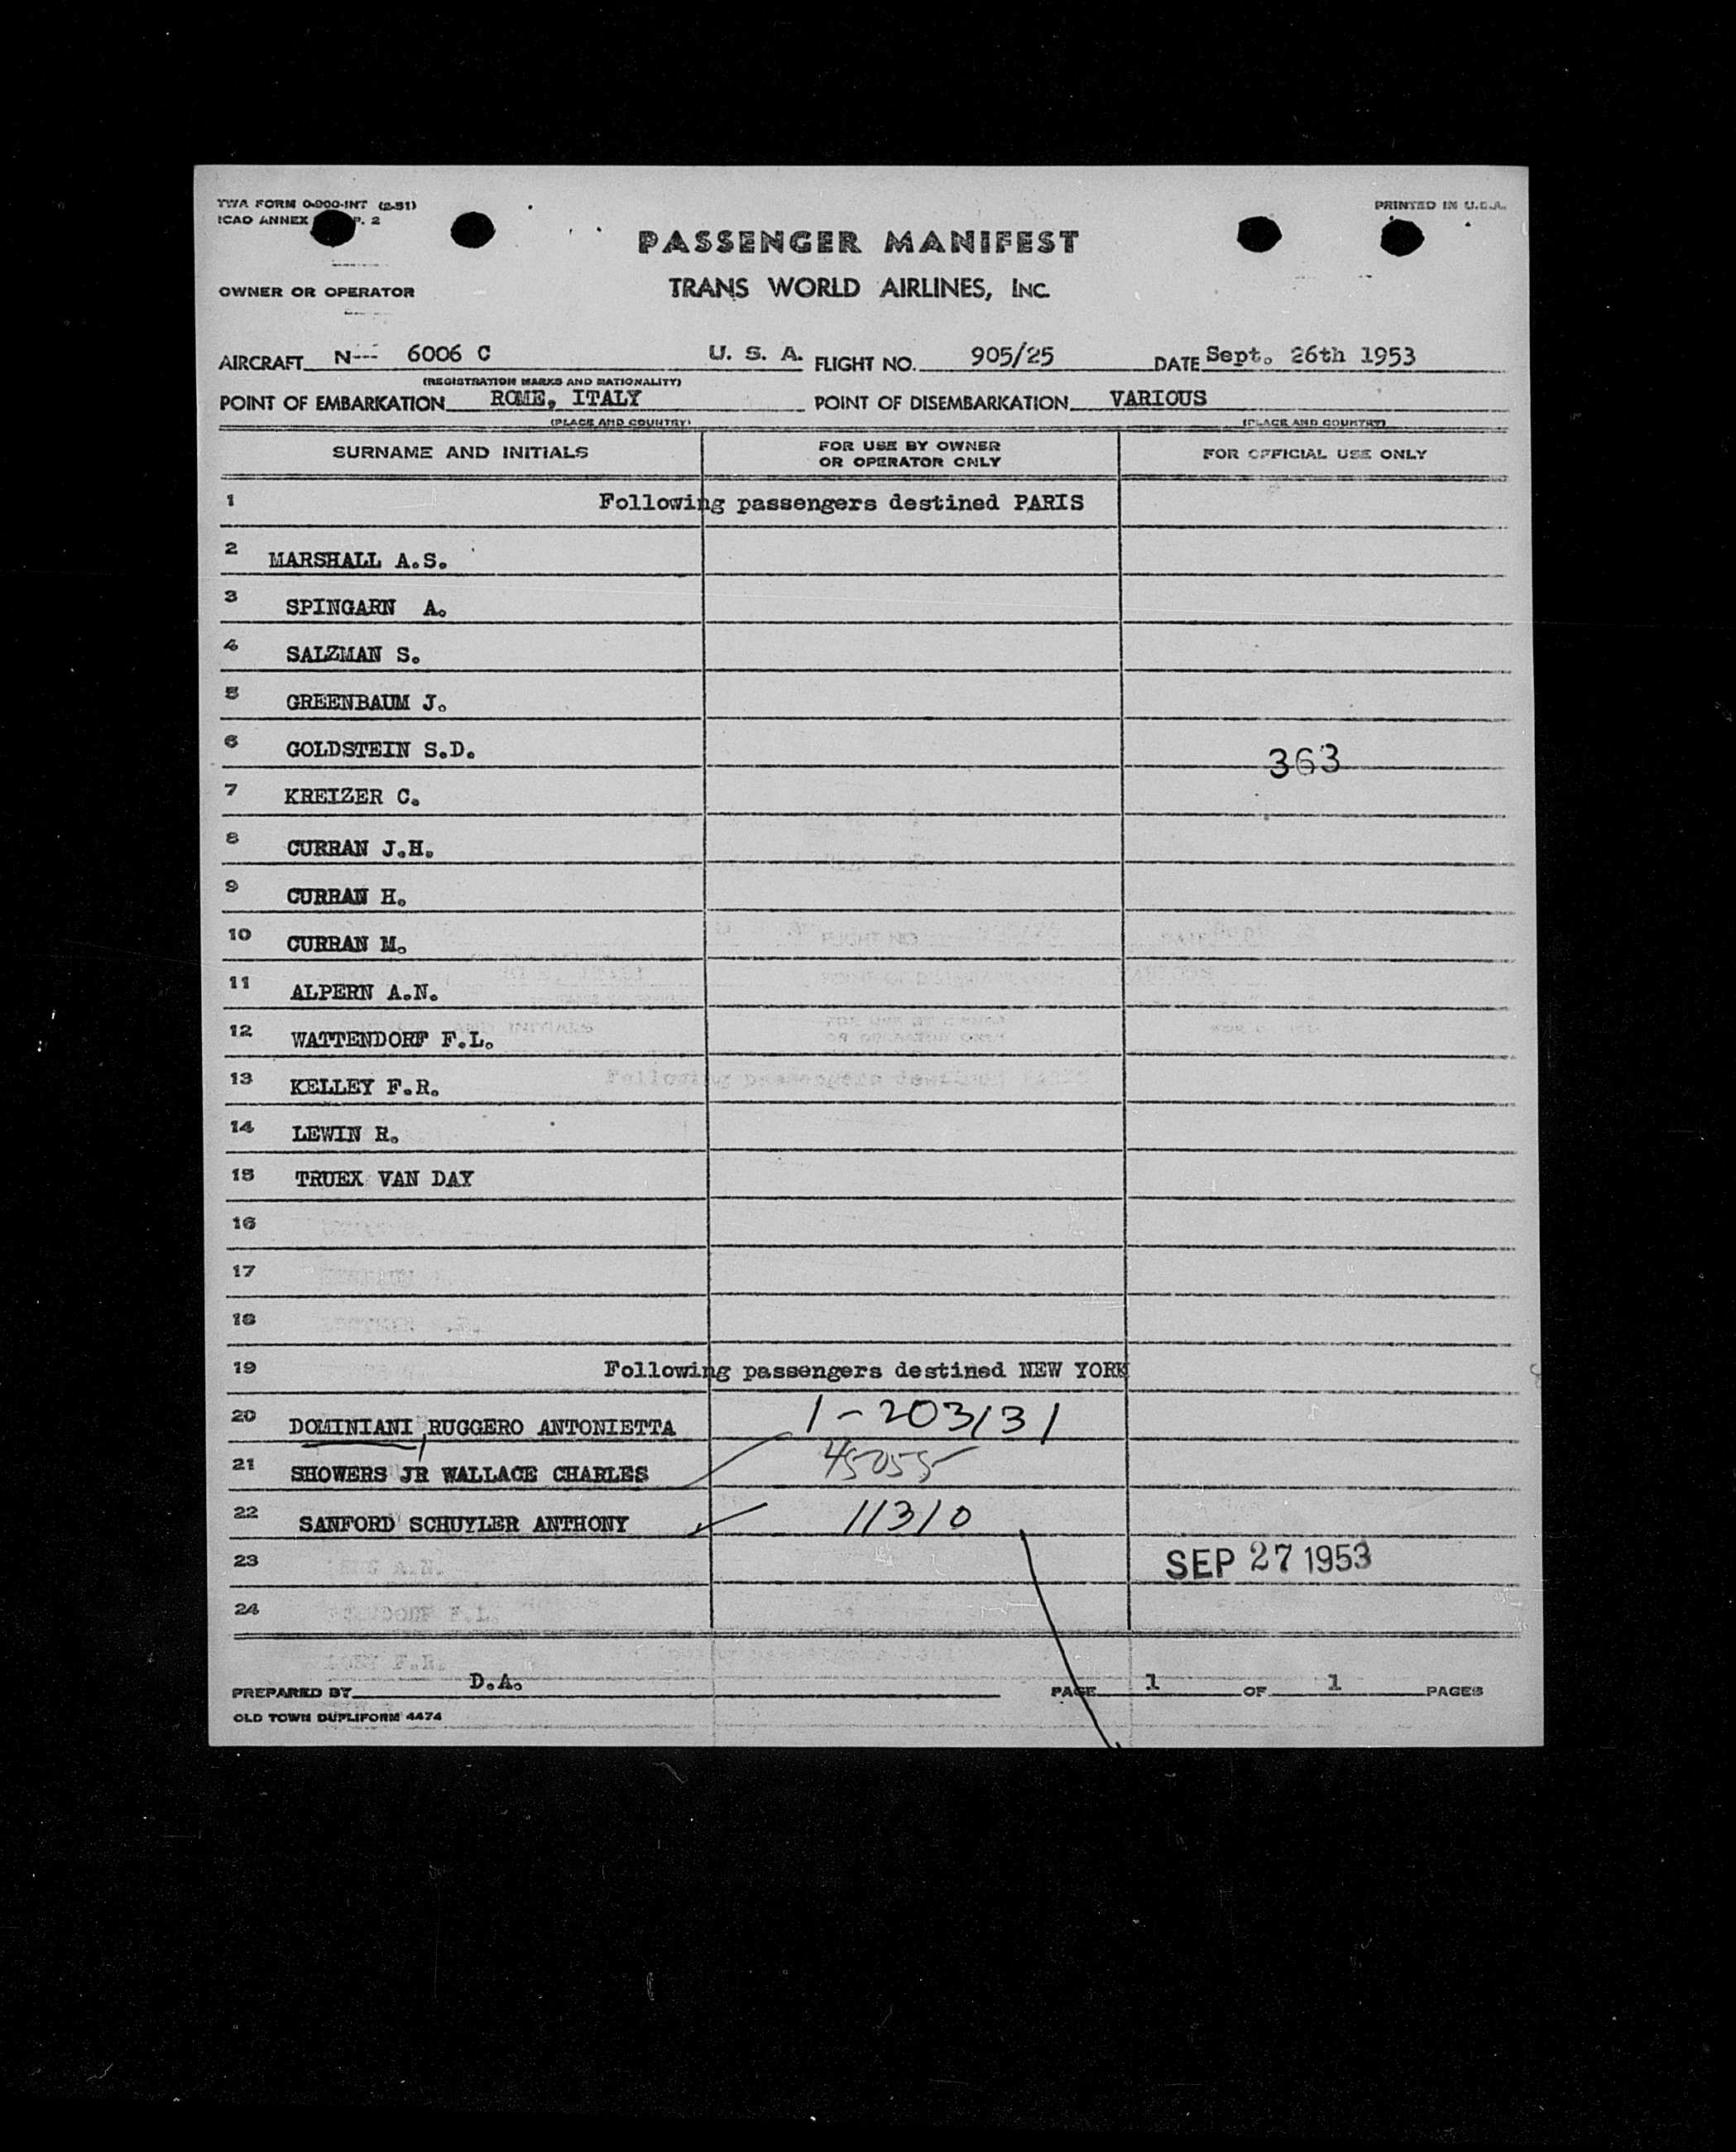 TWA FORM O-900-INT (2-51)
ICAO ANNEX P. 2
PRINTED IN U.S.A.
PASSENGER MANIFEST
OWNER OR OPERATOR
TRANS WORLD AIRLINES, INC.
AIRCRAFT N--- 6006 C U. S. A. FLIGHT NO. 905/25 DATE Sept. 26th 1953
(REGISTRATION MARKS AND NATIONALITY)
POINT OF EMBARKATION ROME, ITALY POINT OF DISEMBARKATION VARIOUS
(PLACE AND COUNTRY) (PLACE AND COUNTRY)
SURNAME AND INITIALS FOR USE BY OWNER OR OPERATOR ONLY FOR OFFICIAL USE ONLY
1 Following passengers destined PARIS
2 MARSHALL A.S.
3 SPINGARN A.
4 SALZMAN S.
5 GREENBAUM J.
6 GOLDSTEIN S.D. 363
7 KREIZER C.
8 CURRAN J.H.
9 CURRAN H.
10 CURRAN M.
11 ALPERN A.N.
12 WATTENDORF F.L.
13 KELLEY F.R.
14 LEWIN R.
15 TRUEX VAN DAY
16
17
18
19 Following passengers destined NEW YORK
20 DOMINIANI, RUGGERO ANTONIETTA 1-203131
21 SHOWERS JR WALLACE CHARLES 45055
22 SANFORD SCHUYLER ANTHONY 11310
23 SEP 27 1953
24
PREPARED BY D.A. PAGE 1 OF 1 PAGES
OLD TOWN DUPLIFORM 4474